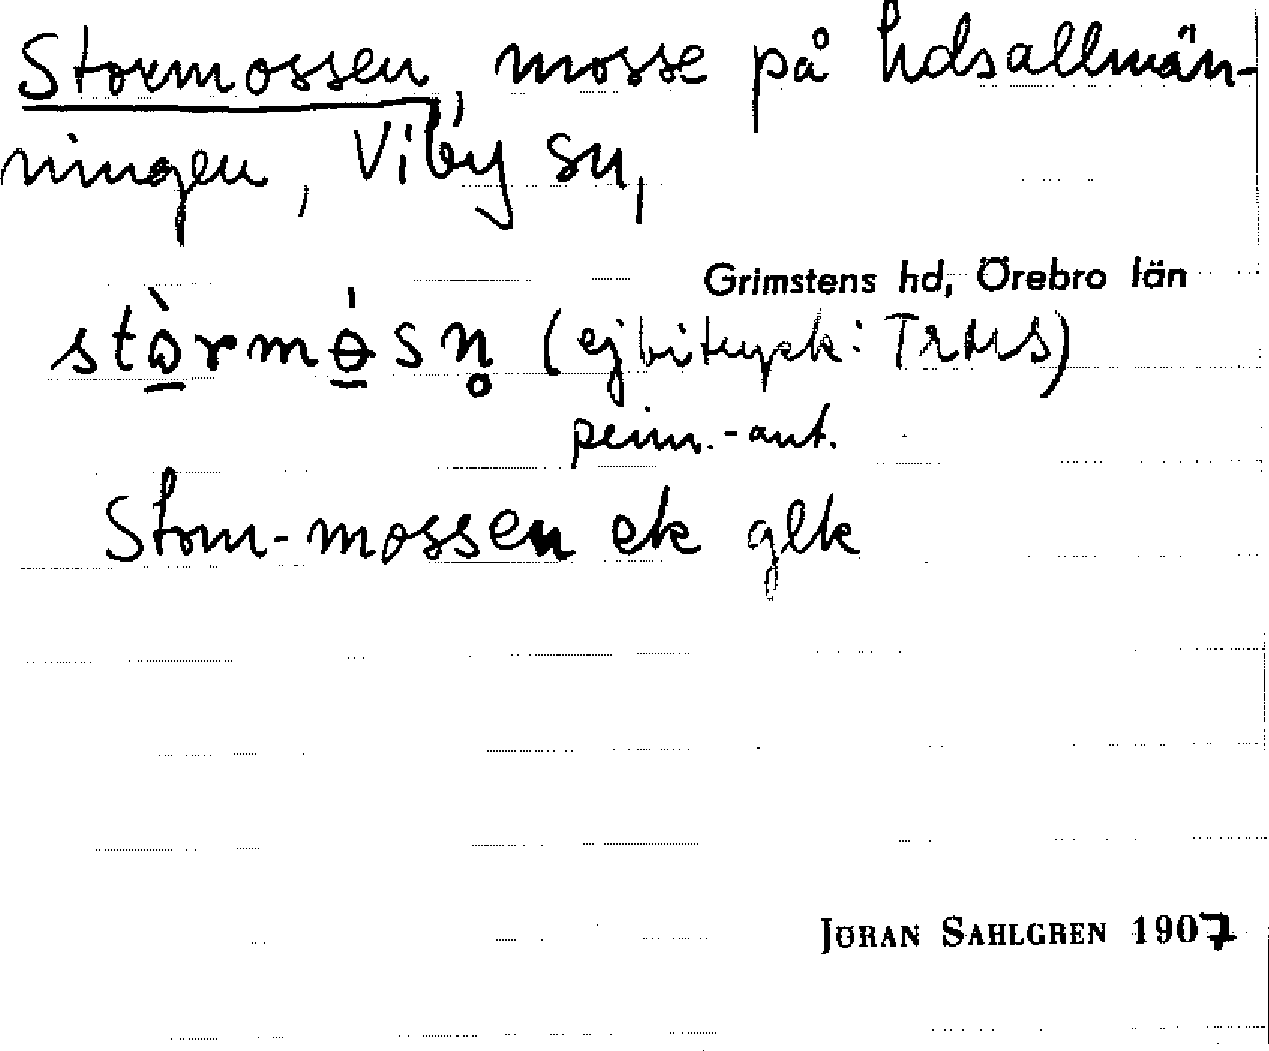 Stormossen, mosse på hdsallmän-
ningen, Viby sn,
Grimstens hd, Örebro län
stòrmósn̥ (ej bitryck: TRHS)
penn.-ant.
Storm-mossen ek glk
JÖRAN SAHLGREN 1907